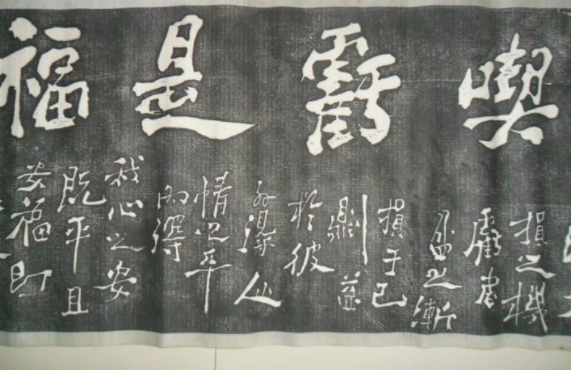 喫虧是福
損之機
虧者
盈之漸
損于己
則益
於彼
外得人
情之平
内得
我心之安
既平且
安福即